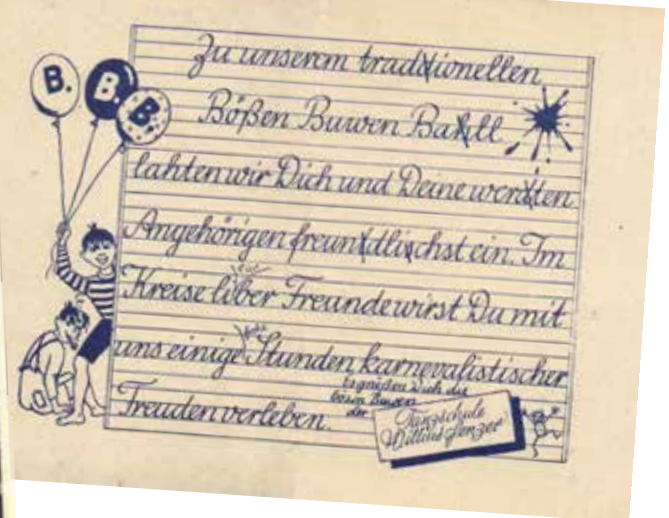 B. B. B.
Zu unserem traditionellen
Bößen Buwen Ball
lahten wir Dich und Deine werten
Angehörigen freundlichst ein. Im
Kreise liber Freunde wirst Du mit
uns einige Stunden karnevalistischer
Freuden verleben.
böser Buwen
der
Tanzschule